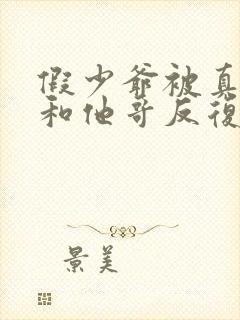 假少爺被真
和他哥反復
景美